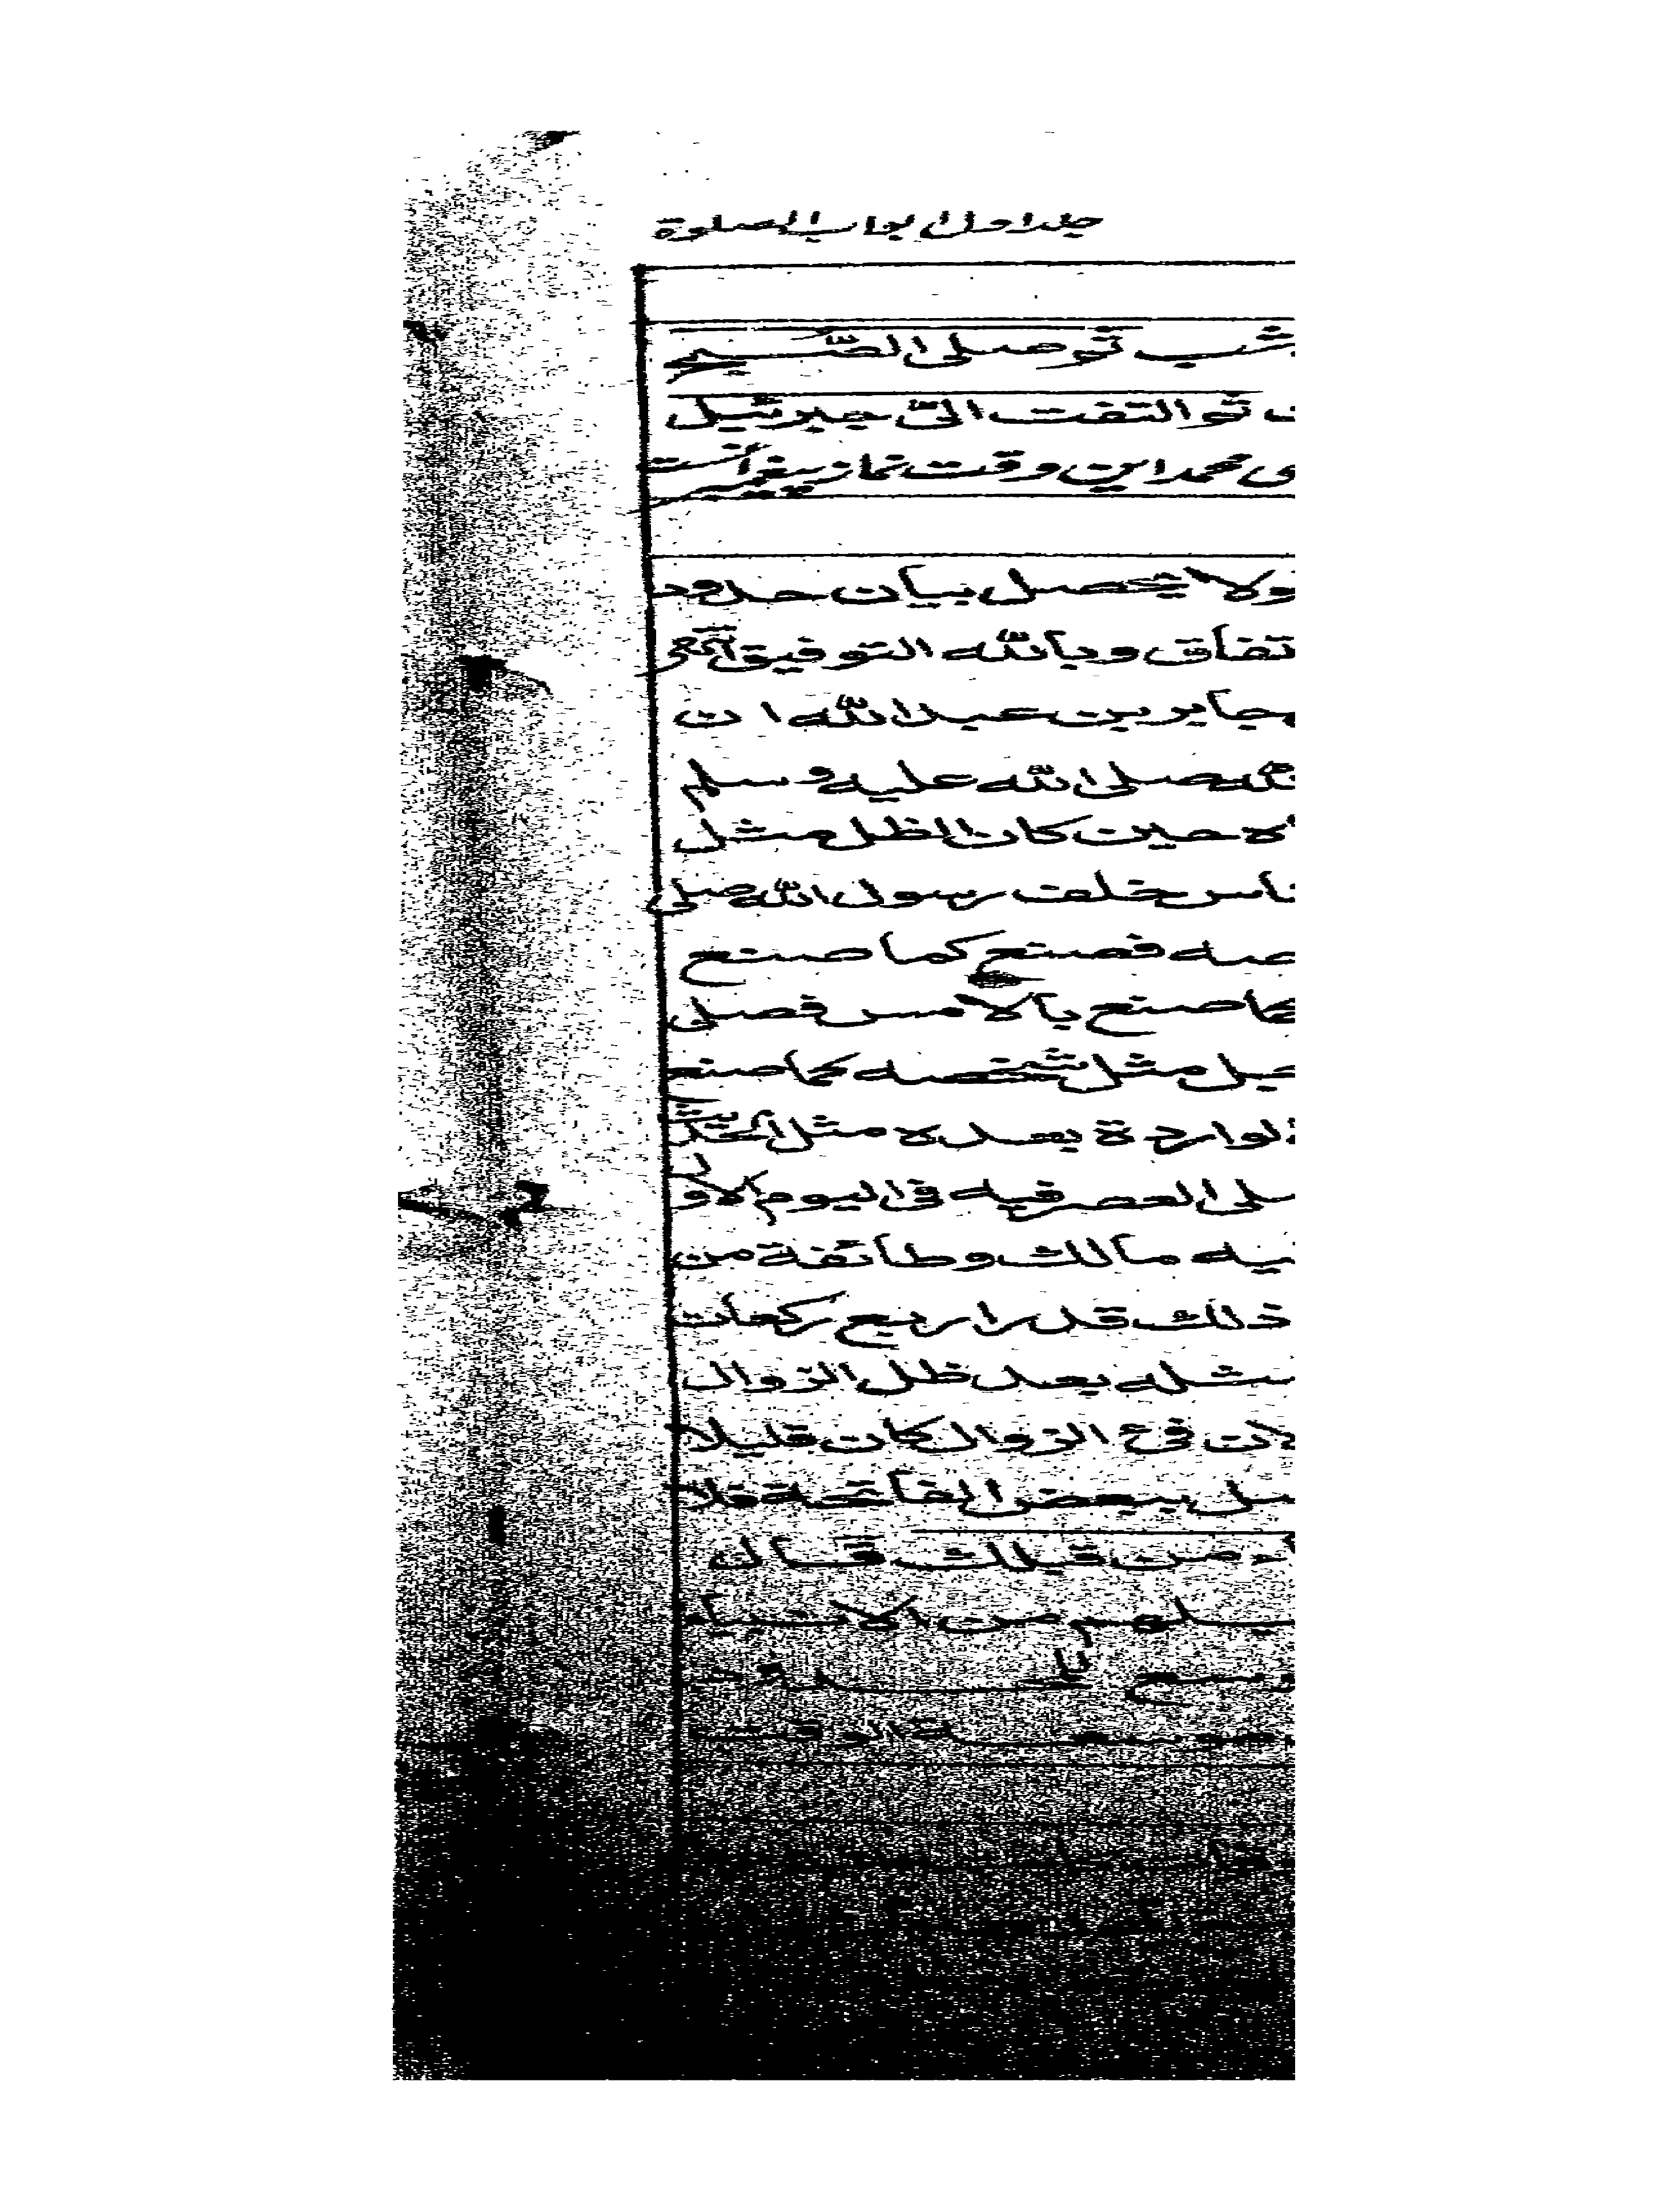 جلد اول ابواب الصلوة
شب ثم صلى الصبح
ثم التفت الىّ جبرئيل
محمد اين وقت نماز پيغمبرانست
ولا يحصل بيان حدود
تفاق وبالله التوفيق
جابر بن عبد الله ان
صلى الله عليه وسلم
حين كان الظل مثل
ناس خلف رسول الله صلى
صه فصنع كما صنع
كما صنع بالامس فصلى
مثل شخصه كما صنع
الواردة بعده مثل
العصر فيه فى اليوم الاول
مالك وطائفة من
ذلك قدر اربع ركعات
مثله بعد ظل الزوال
لان فئ الزوال كان قليلا
بعض الفائحة فلا
من قبلك قال
قبلهم من الانبياء
الوقت